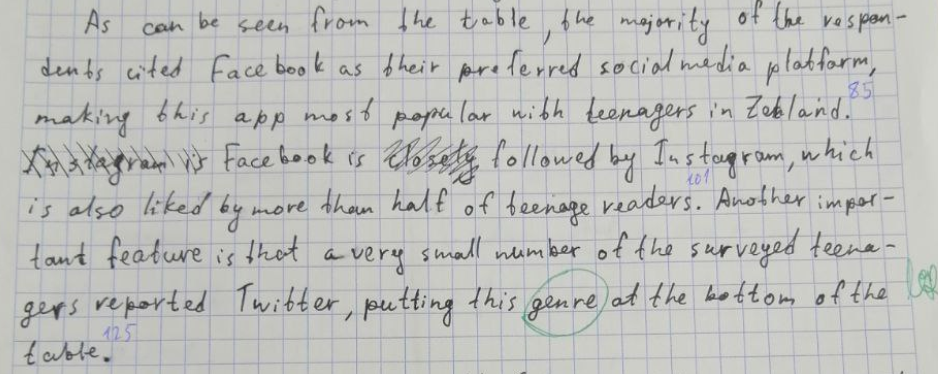 As can be seen from the table, the majority of the respon-
dents cited Facebook as their preferred social media platform,
making this app most popular with teenagers in Zetland. 85
Instagram is Facebook is closely followed by Instagram, which
is also liked by more than half of teenage readers. 101 Another impor-
tant feature is that a very small number of the surveyed teena-
gers reported Twitter, putting this genre at the bottom of the
table. 125